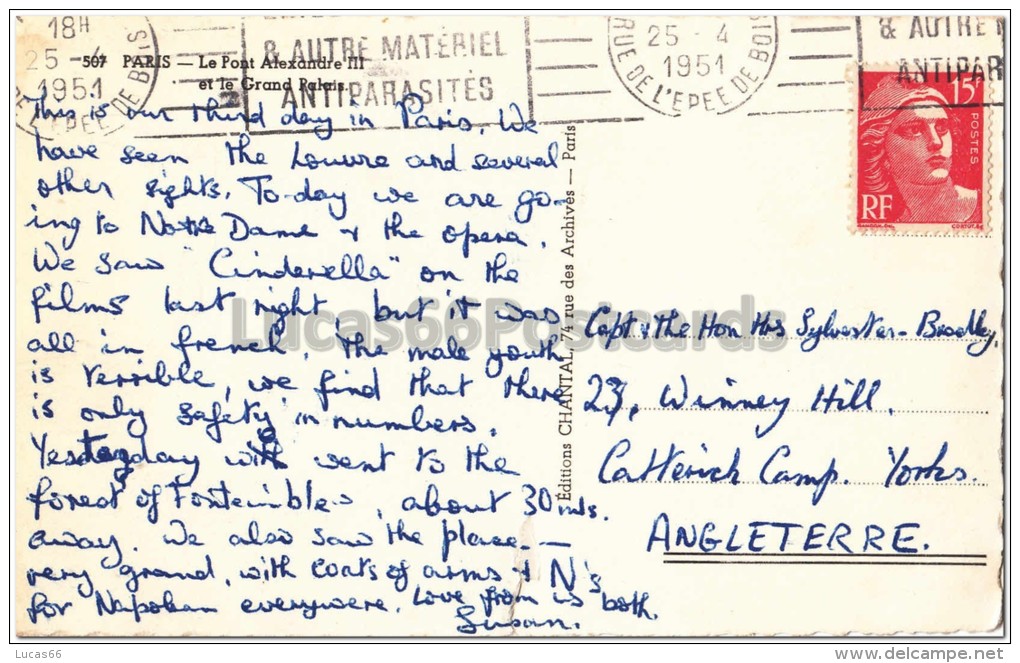 18H
25 -4
1951
DE BOIS
& AUTRE MATÉRIEL
ANTIPARASITÉS
25 - 4
1951
RUE DE L'EPEE DE BOIS
& AUTRE
ANTIPAR
507 PARIS — Le Pont Alexandre III
et le Grand Palais.
15F
POSTES
RF
This is our third day in Paris. We
have seen the Louvre and several
other sights. To-day we are go-
ing to Notre Dame & the opera.
We saw "Cinderella" on the
films last night, but it was
all in french. The male youth
is terrible, we find that there
is only safety in numbers.
Yesterday we went to the
forest of Fontainbleo, about 30 mls.
away. We also saw the place —
very grand, with coats of arms & N's
for Napoleon everywere. Love from us both.
Susan.
Editions CHANTAL, 74 rue des Archives — Paris
Capt & The Hon Mrs Sylvester-Bradley,
23, Winney Hill.
Catterick Camp. Yorks.
ANGLETERRE.
Lucas66Postcards
Lucas66
www.delcampe.net